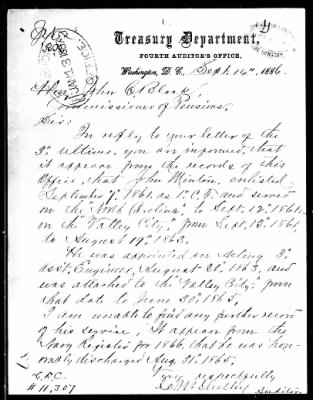 Treasury Department,
FOURTH AUDITOR'S OFFICE,
Washington, D. C., Sept. 14th, 1886.
Hon. John C. Black,
Commissioner of Pensions,
Sir:
In reply to your letter of the
3d ultimo, you are informed, that
it appears from the records of this
Office, that John Minton, enlisted
September 7th 1861, as 1st C. F. and served
on the "North Carolina" to Sept. 12th 1861;
on the Valley City, from Sept. 12th 1861,
to August 19th 1863.
He was appointed an Acting 3d
ass't Engineer, August 20th 1863, and
was attached to the Valley City, from
that date to June 20th 1865.
I am unable to find any further record
of his service; It appears from the
Navy Register for 1866, that he was hon-
orably discharged Aug. 31st 1865.
Very respectfully
Auditor.
# 11,307